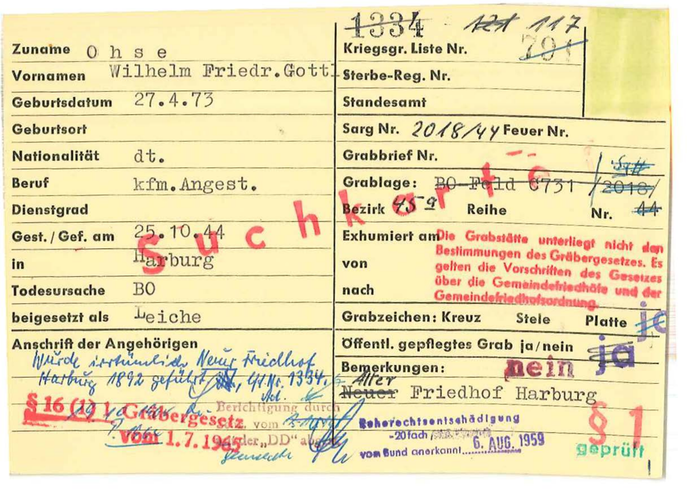 1334 121 117
Zuname Ohse
Kriegsgr. Liste Nr. 791
Vornamen Wilhelm Friedr.Gottl
Sterbe-Reg. Nr.
Geburtsdatum 27.4.73
Standesamt
Geburtsort
Sarg Nr. 2018/44 Feuer Nr.
Nationalität dt.
Grabbrief Nr.
Beruf kfm.Angest.
Grablage: BO-Feld C731 /2018/
Dienstgrad
Bezirk 45a Reihe Nr. 44
Suchkarte
Gest./Gef. am 25.10.44
Exhumiert am
in Harburg
von
Todesursache BO
nach
Die Grabstätte unterliegt nicht den
Bestimmungen des Gräbergesetzes. Es
gelten die Vorschriften des Gesetzes
über die Gemeindefriedhöfe und der
Gemeindefriedhofsordnung.
beigesetzt als Leiche
Grabzeichen: Kreuz Stele Platte ja
Anschrift der Angehörigen
Öffentl. gepflegtes Grab ja/nein ja
nein
Wurde irrtümlich Neuer Friedhof
Harburg 1892 geführt
1334
Bemerkungen: Alter
Neuer Friedhof Harburg
§ 16 (1) 1. Gräbergesetz
vom 1.7.1965
Berichtigung durch
vom
der „DD"
Ruherechtsentschädigung
-20fach
vom Bund anerkannt 6. AUG. 1959
§ 1
geprüft